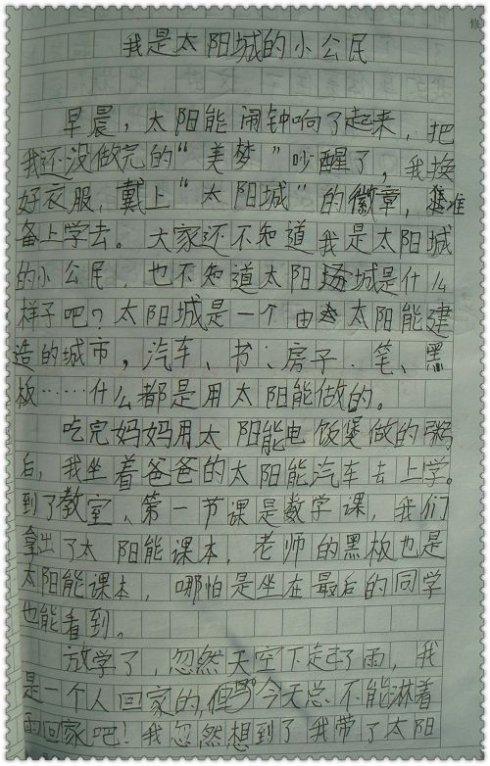 我是太阳城的小公民
早晨，太阳能闹钟响了起来，把
我还没做完的“美梦”吵醒了，我换
好衣服，戴上“太阳城”的徽章，准
备上学去。大家还不知道我是太阳城
的小公民，也不知道太阳城是什么
样子吧？太阳城是一个由太阳能建
造的城市，汽车、书、房子、笔、黑
板……什么都是用太阳能做的。
吃完妈妈用太阳能电饭煲做的粥
后，我坐着爸爸的太阳能汽车去上学。
到了教室、第一节课是数学课，我们
拿出了太阳能课本，老师的黑板也是
太阳能课本，哪怕是坐在最后的同学
也能看到。
放学了，忽然天空下起了雨，我
是一个人回家的，但今天总不能淋着
雨回家吧！我忽然想到了我带了太阳